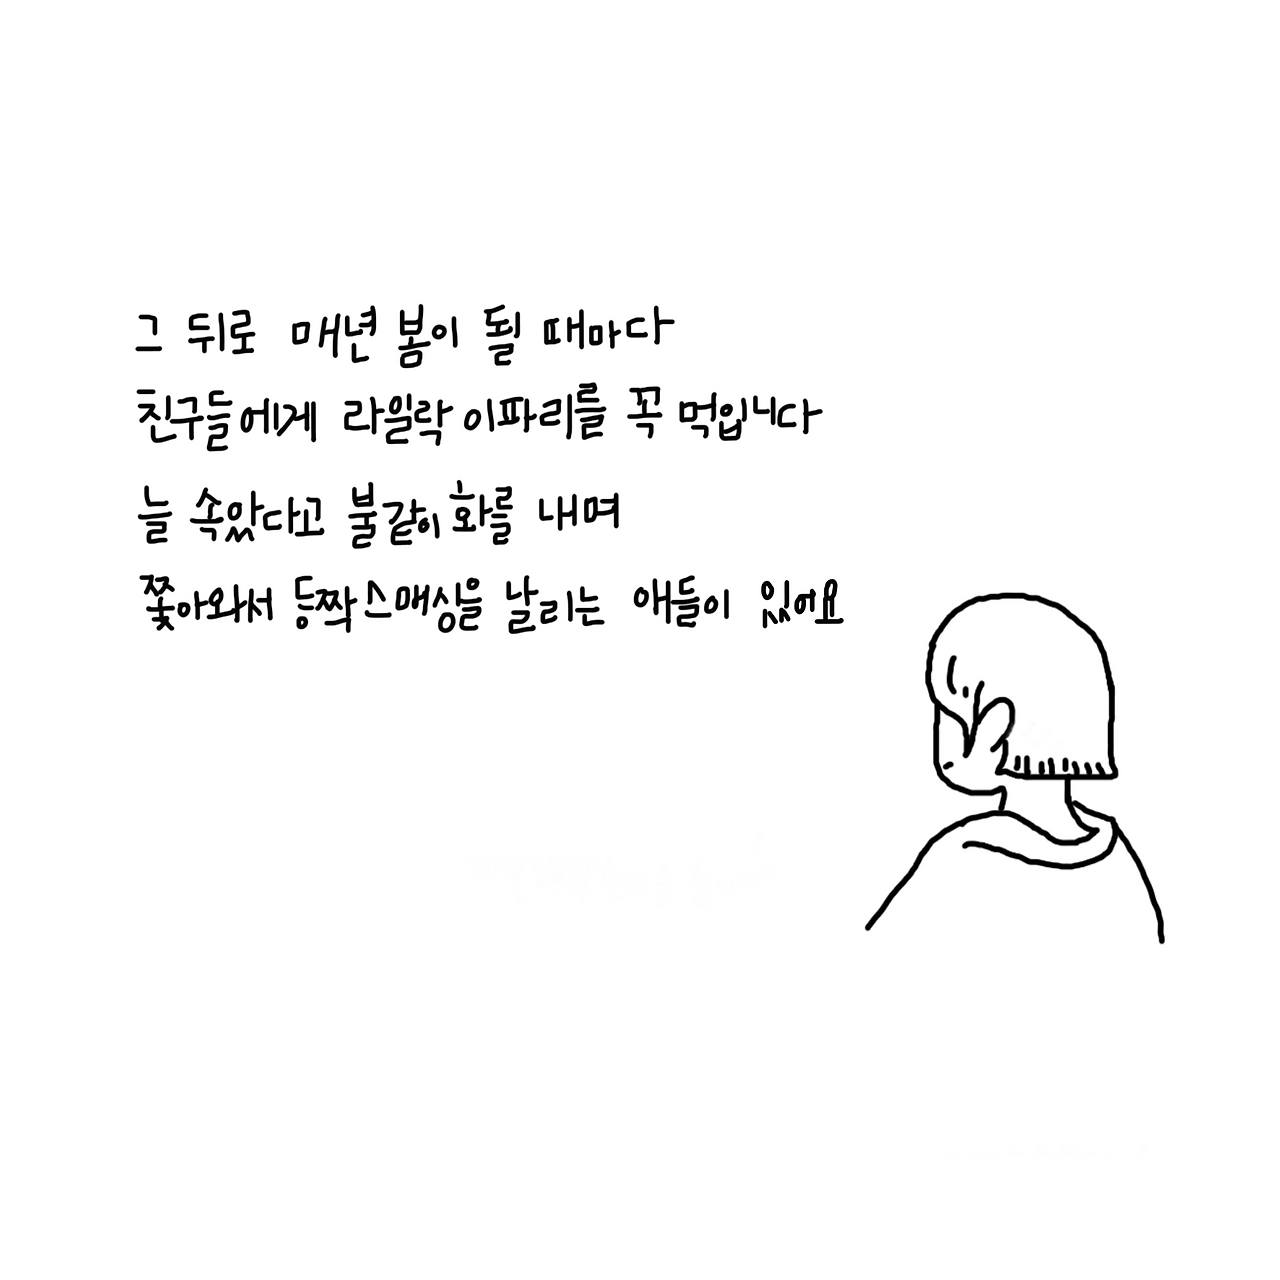 그 뒤로 매년 봄이 될 때마다
친구들에게 라일락 이파리를 꼭 먹입니다
늘 속았다고 불같이 화를 내며
쫓아와서 등짝 스매싱을 날리는 애들이 있어요